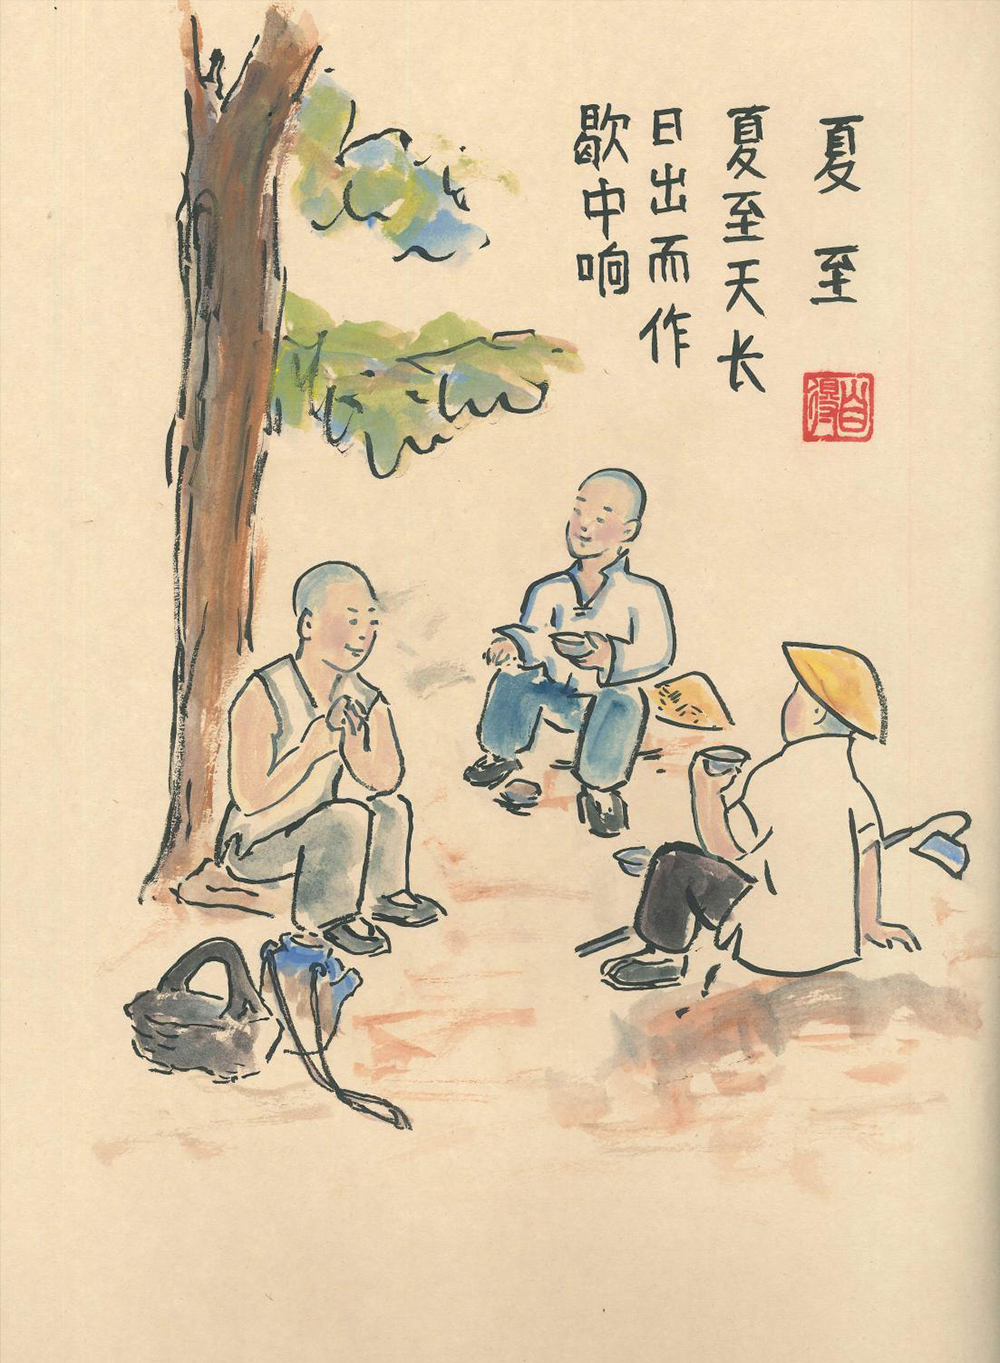 夏至
夏至天长
日出而作
歇中响